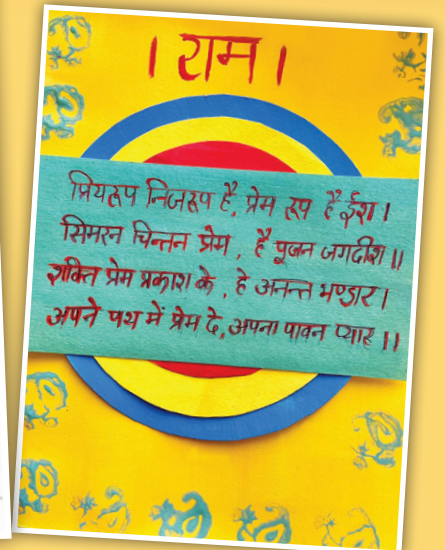 । राम ।
प्रियरूप निजरूप है, प्रेम रूप है ईश ।
सिमरन चिन्तन प्रेम, है पूजन जगदीश ॥
शक्ति प्रेम प्रकाश के, हे अनन्त भण्डार ।
अपने पथ में प्रेम दे, अपना पावन प्यार ॥